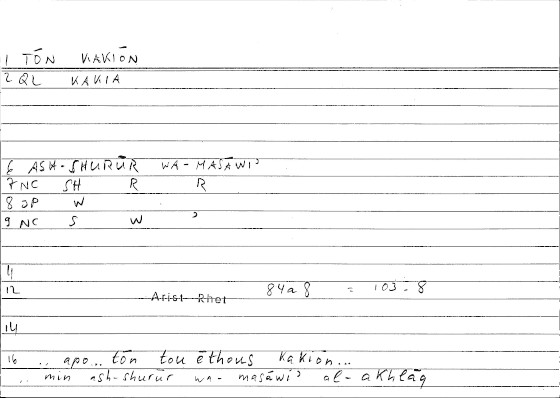 1 TŌN KAKIŌN
2 QL KAKIA
6 ASH-SHURŪR WA-MASĀWIʾ
7 NC SH R R
8 JP W
9 NC S W ʾ
4
12 Arist-Rhet 84a8 = 103-8
14
16 .. apo... tōn tou ēthous kakiōn...
.. min ash-shurūr wa-masāwiʾ al-akhlāq